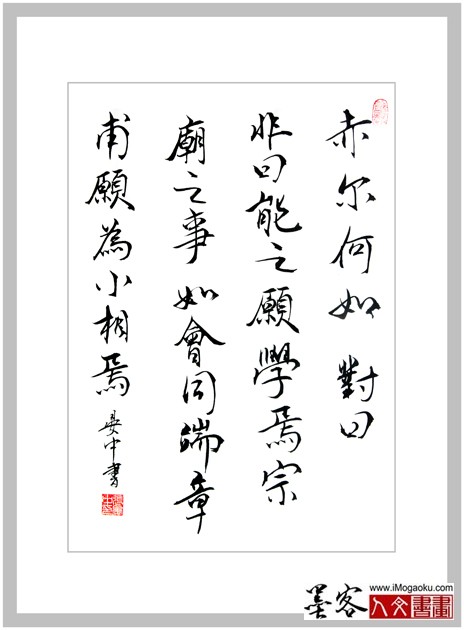 赤尔何如 對曰
非曰能之願學焉宗
廟之事 如會同端章
甫願為小相焉
中書
墨客
www.iMogaoku.com
人文書畫